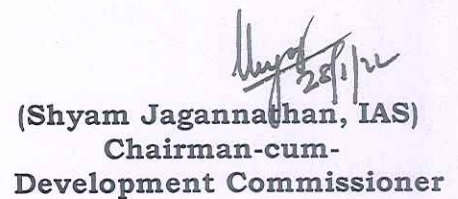 28/1/22
(Shyam Jagannathan, IAS)
Chairman-cum-
Development Commissioner